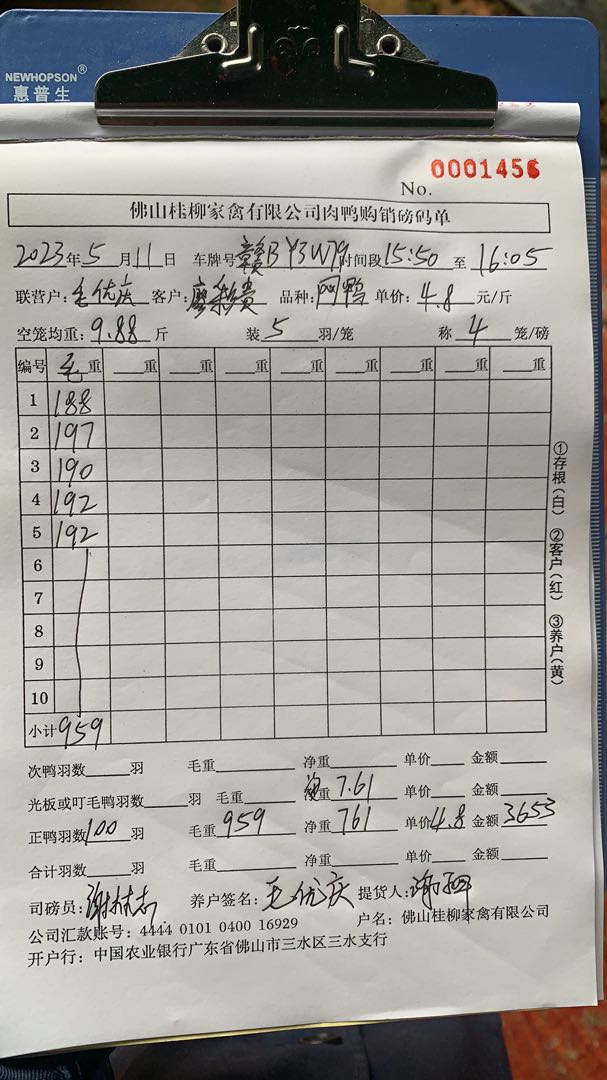 NEWHOPSON®
惠普生
No. 0001456
佛山桂柳家禽有限公司肉鸭购销磅码单
2023年5月11日 车牌号赣BY3W79时间段15:50至16:05
联营户:毛优庆 客户: 品种:网鸭 单价:4.8元/斤
空笼均重:9.88斤 装5羽/笼 称4笼/磅
编号 毛重 重 重 重 重 重 重 重 重
1 188
2 197
3 190
4 192
5 192
6
7
8
9
10
小计 959
①存根(白) ②客户(红) ③养户(黄)
次鸭羽数 羽 毛重 净重 单价 金额
光板或叮毛鸭羽数 羽 毛重 净重7.61 单价 金额
正鸭羽数100羽 毛重959 净重761 单价4.8 金额3653
合计羽数 羽 毛重 净重 单价 金额
司磅员:谢林志 养户签名:毛优庆 提货人:谢
公司汇款账号:4444 0101 0400 16929 户名:佛山桂柳家禽有限公司
开户行:中国农业银行广东省佛山市三水区三水支行